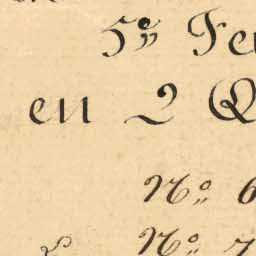 5º Fe
en 2 Q
Nº 6
Nº 7